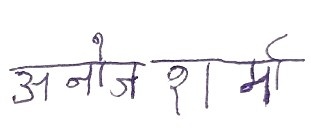 अनोज शर्मा